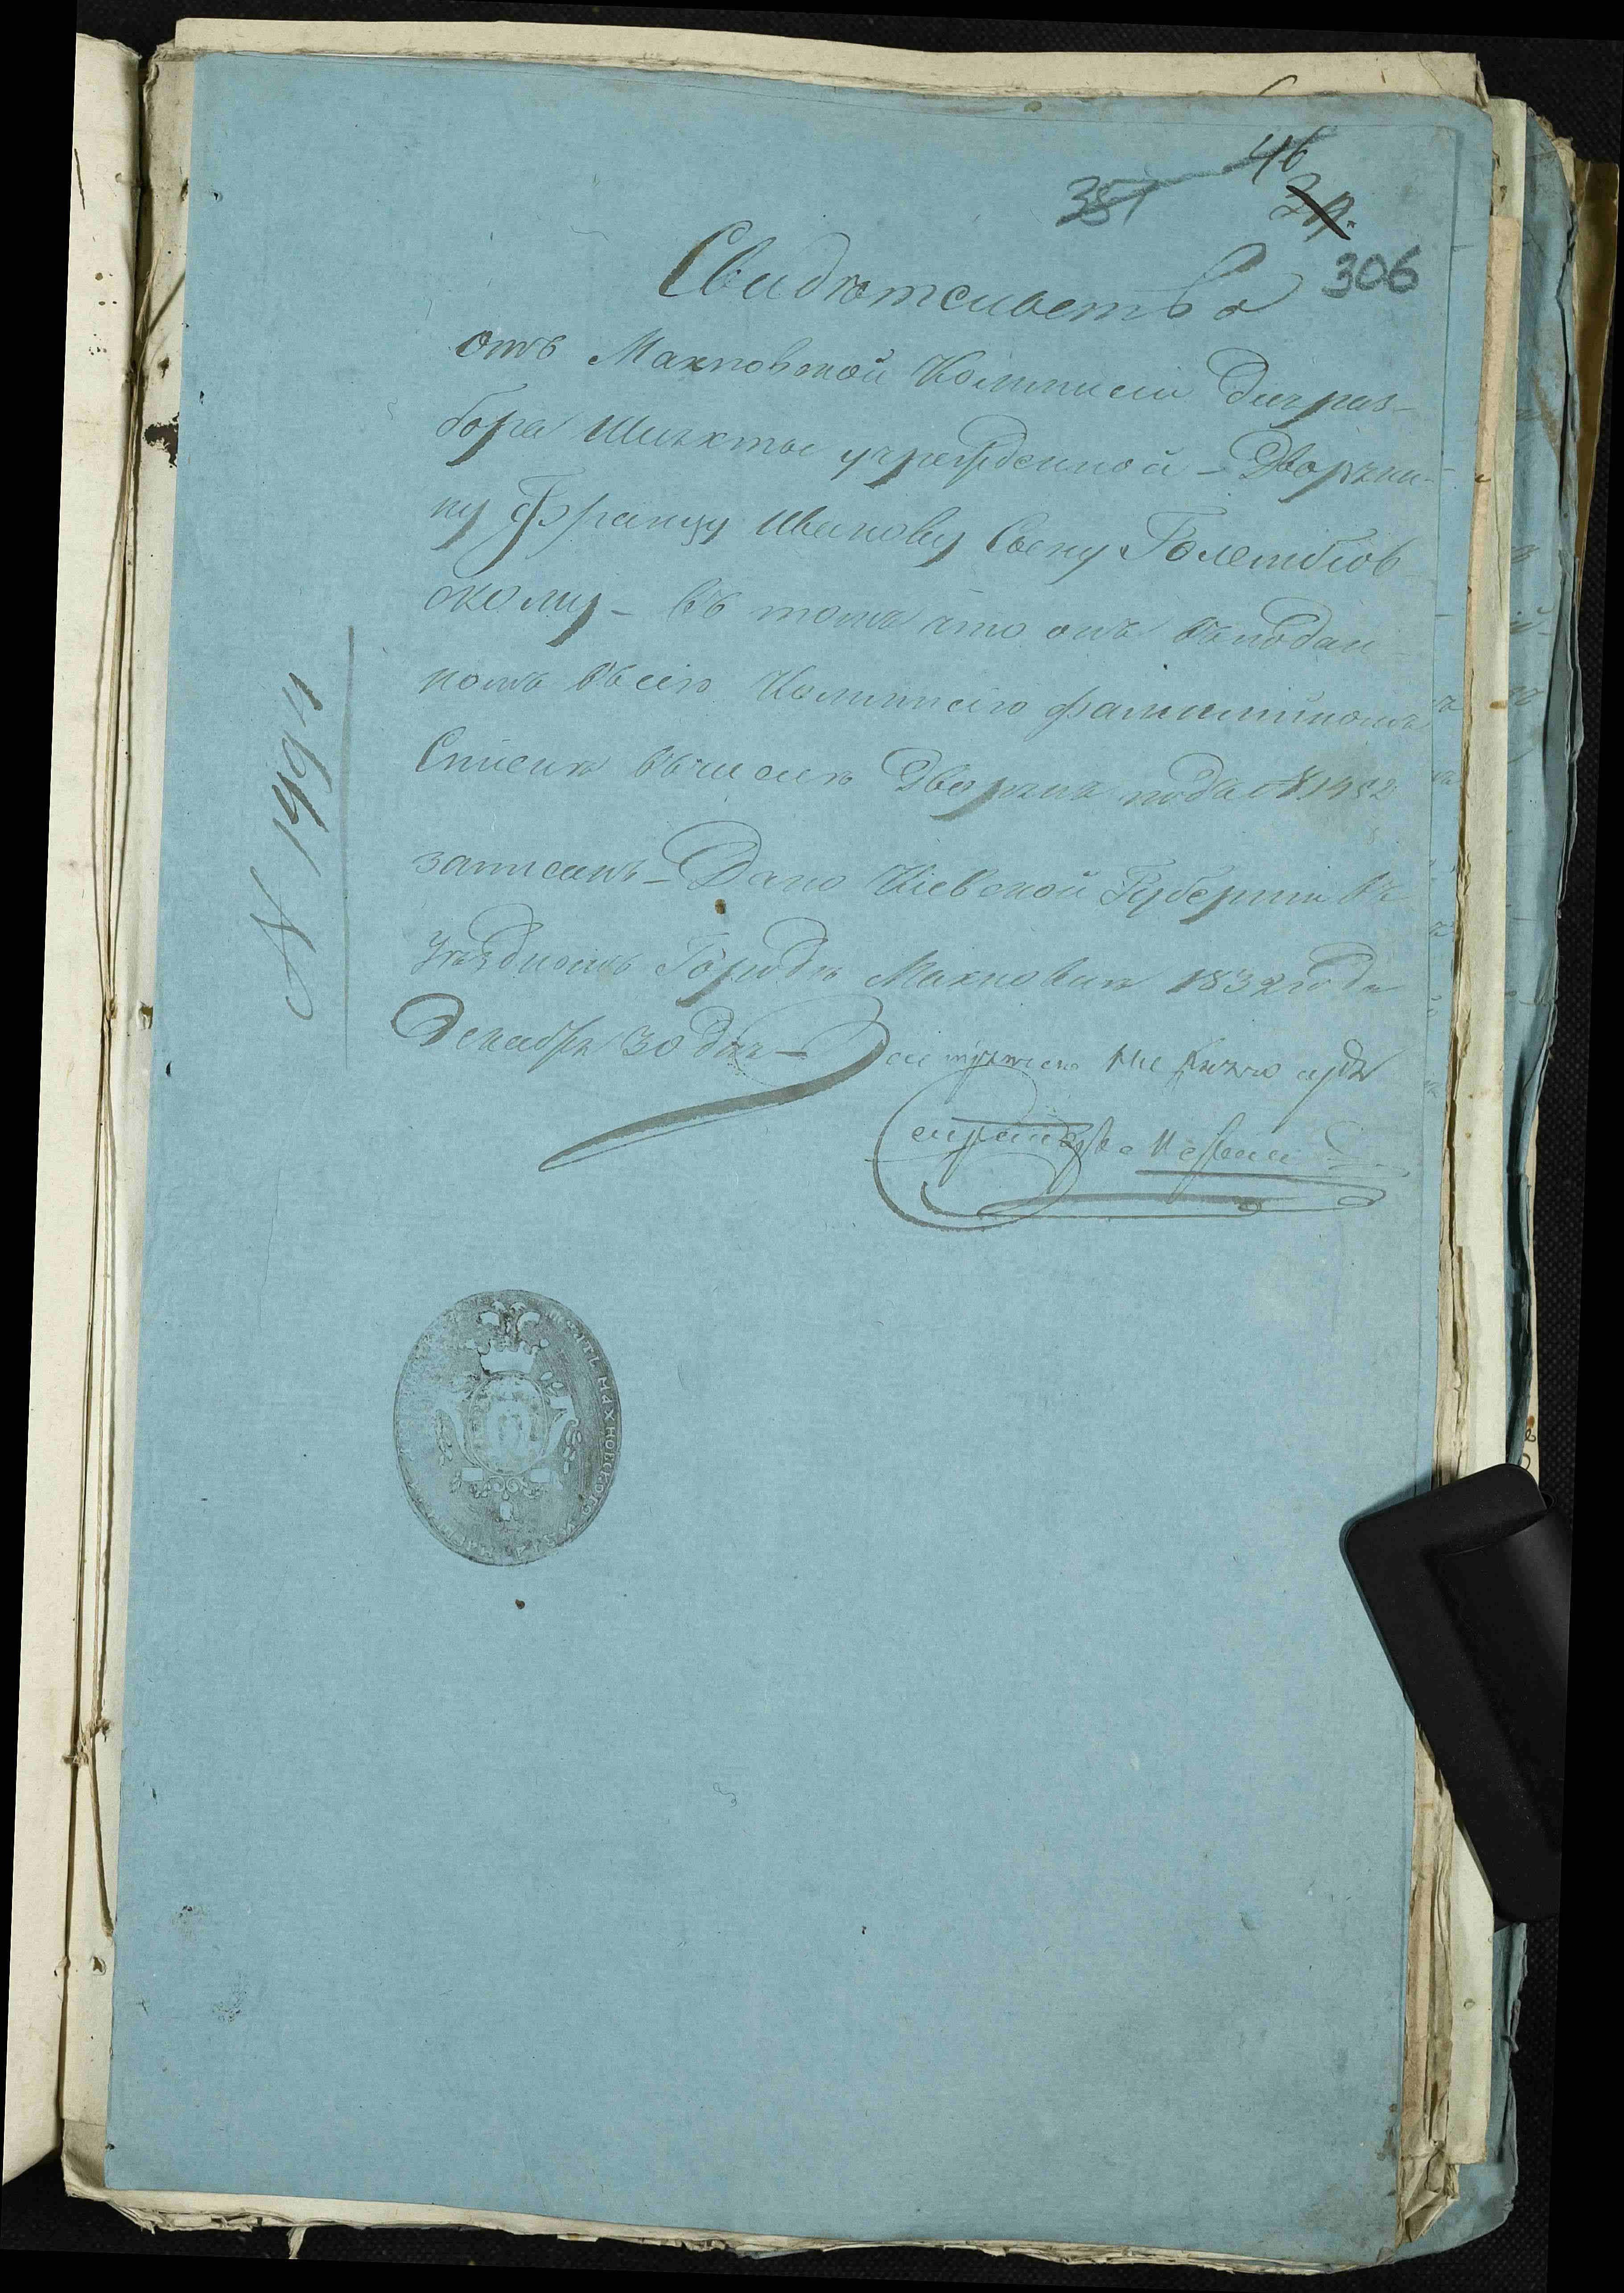 46
351
306
Свидѣтельство
отъ Махновской Коммисіи для раз-
бора Шляхты учрежденной - Дворяни-
ну Францу Иванову Сыну Голембіов-
скому - въ томъ что онъ въ подан-
номъ въ сію Коммисію фамилійномъ
Спискѣ въ числѣ Дворянъ подъ № 1482
записанъ - Дано Кіевской Губерніи въ
уѣздномъ Городѣ Махновкѣ 1832 года
Декабря 30 дня -
№ 1494
МАХНОВСКОГО